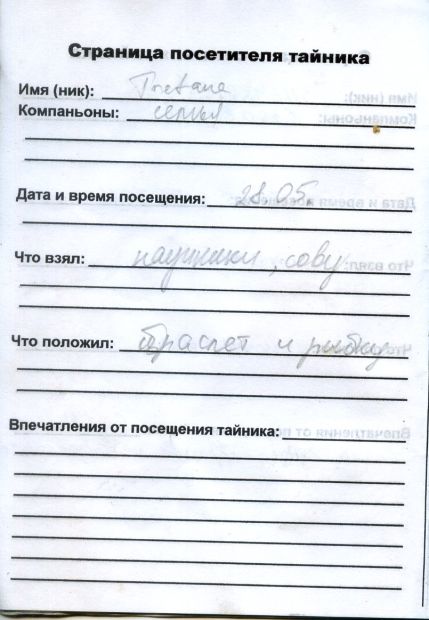 Страница посетителя тайника
Имя (ник): Tretane
Компаньоны: семья
Дата и время посещения: 28.05.
Что взял: наушники, сову
Что положил: браслет и рыбку
Впечатления от посещения тайника: